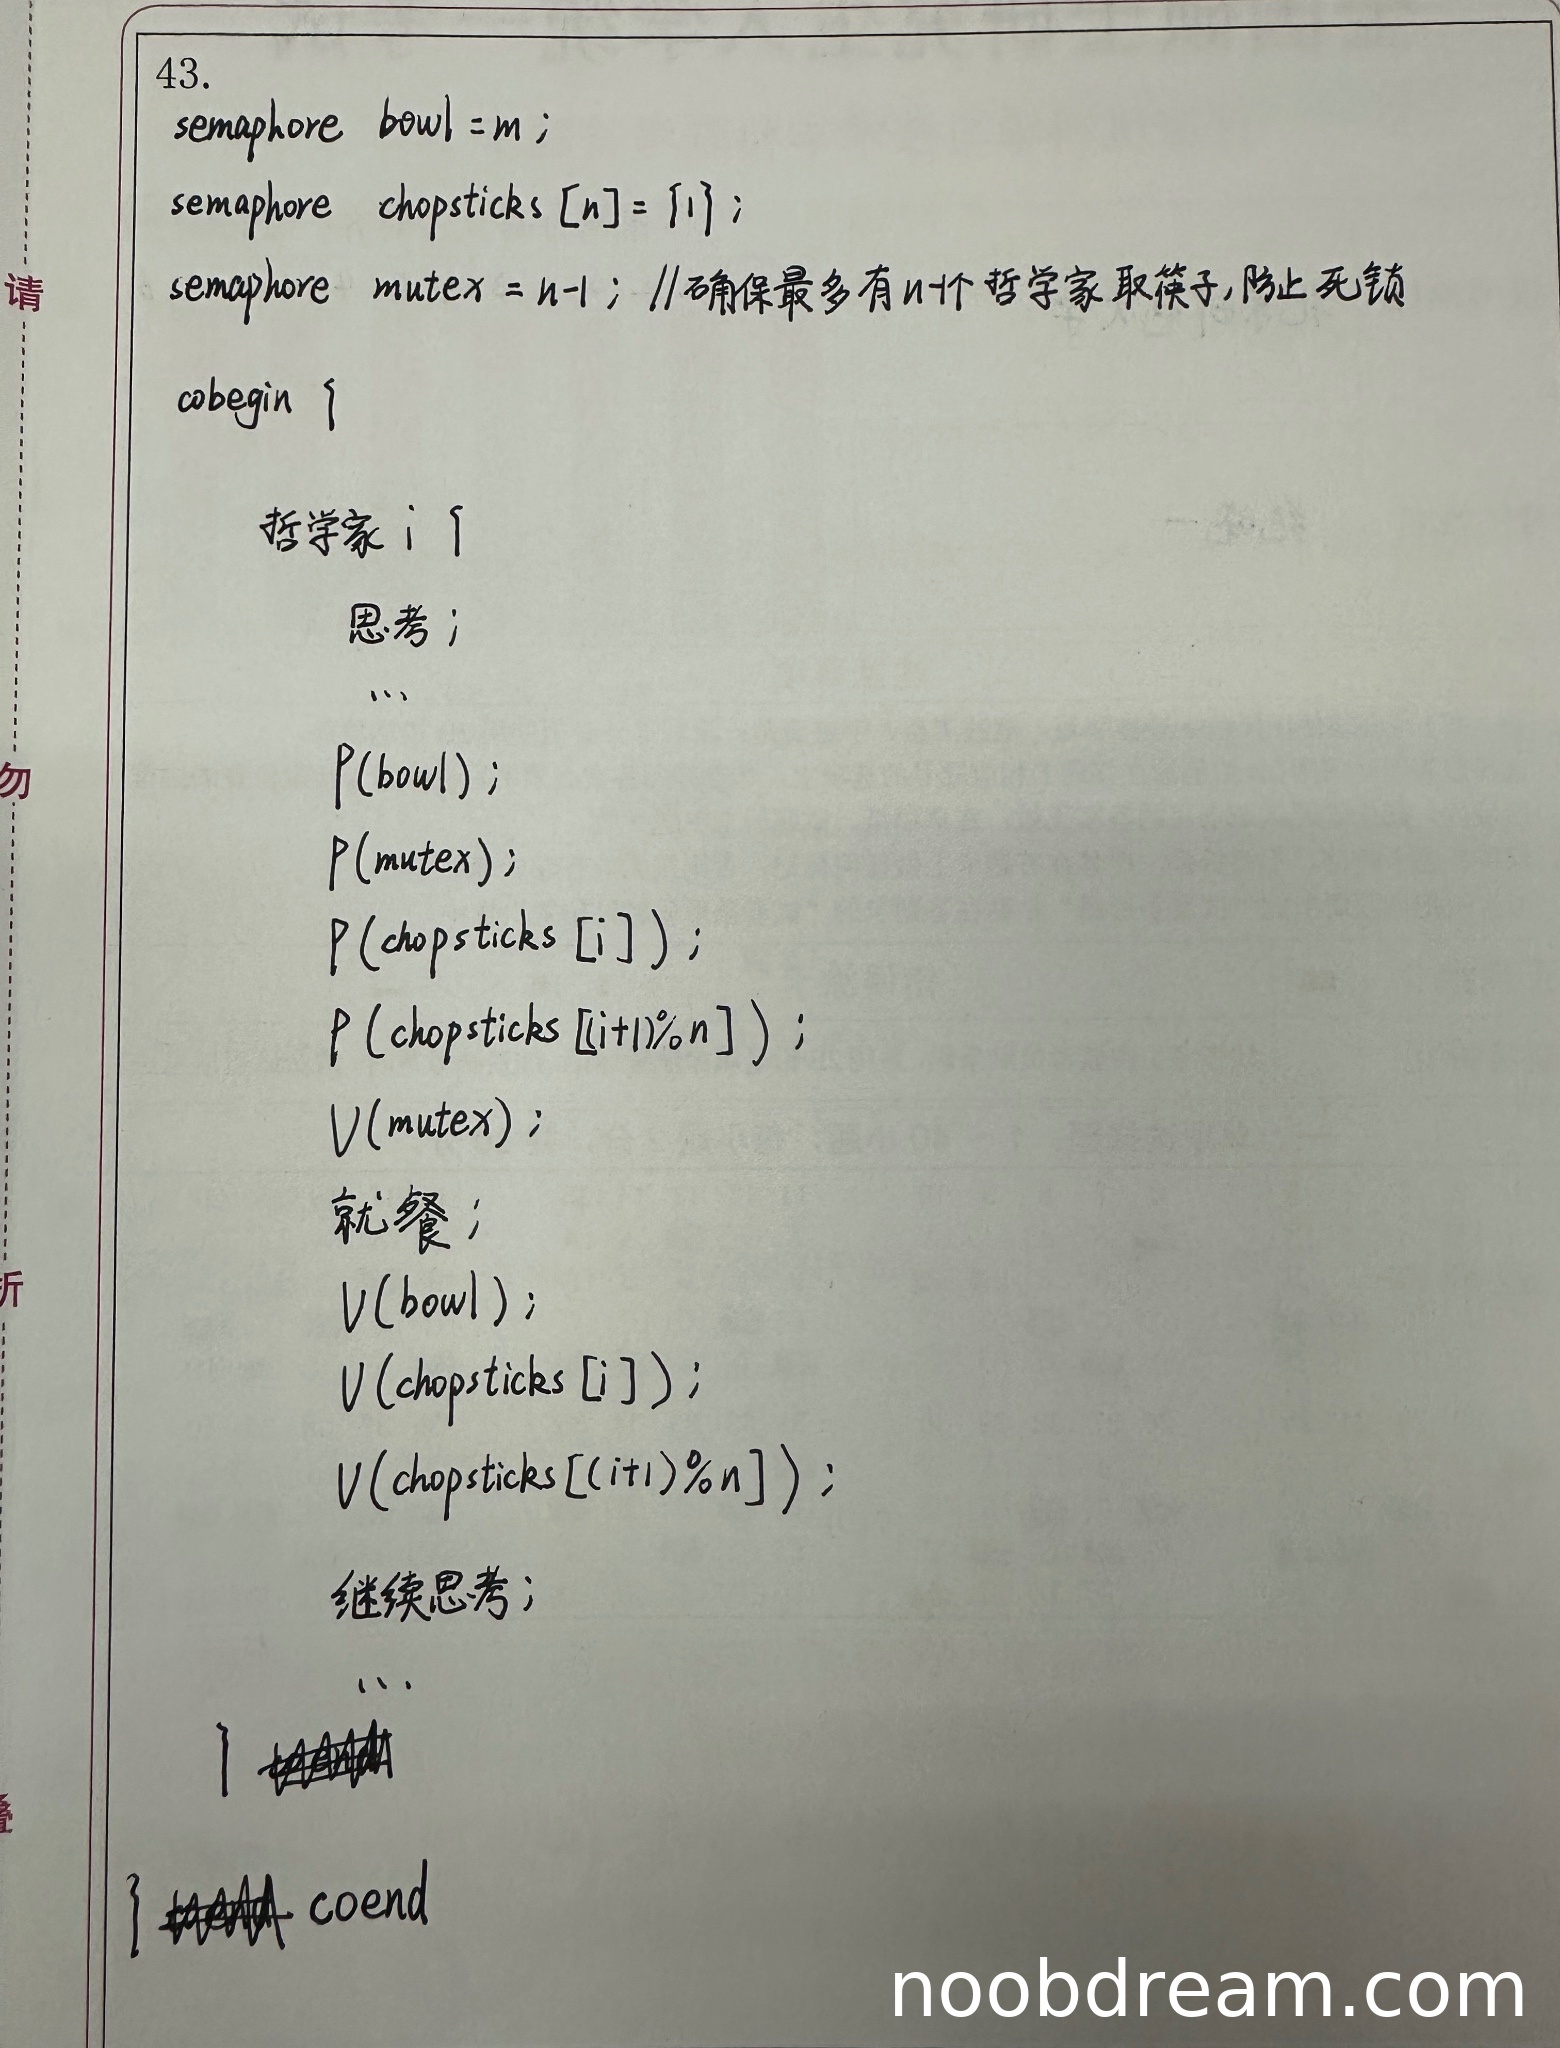 43.
semaphore bowl = m ;
semaphore chopsticks [n] = {1} ;
semaphore mutex = n-1 ; //确保最多有n-1个哲学家取筷子,防止死锁
cobegin {
哲学家 i {
思考 ;
...
P(bowl) ;
P(mutex) ;
P(chopsticks [i]) ;
P(chopsticks [(i+1)%n]) ;
V(mutex) ;
就餐 ;
V(bowl) ;
V(chopsticks [i]) ;
V(chopsticks [(i+1)%n]) ;
继续思考 ;
...
}
} coend
请
勿
折
叠
noobdream.com